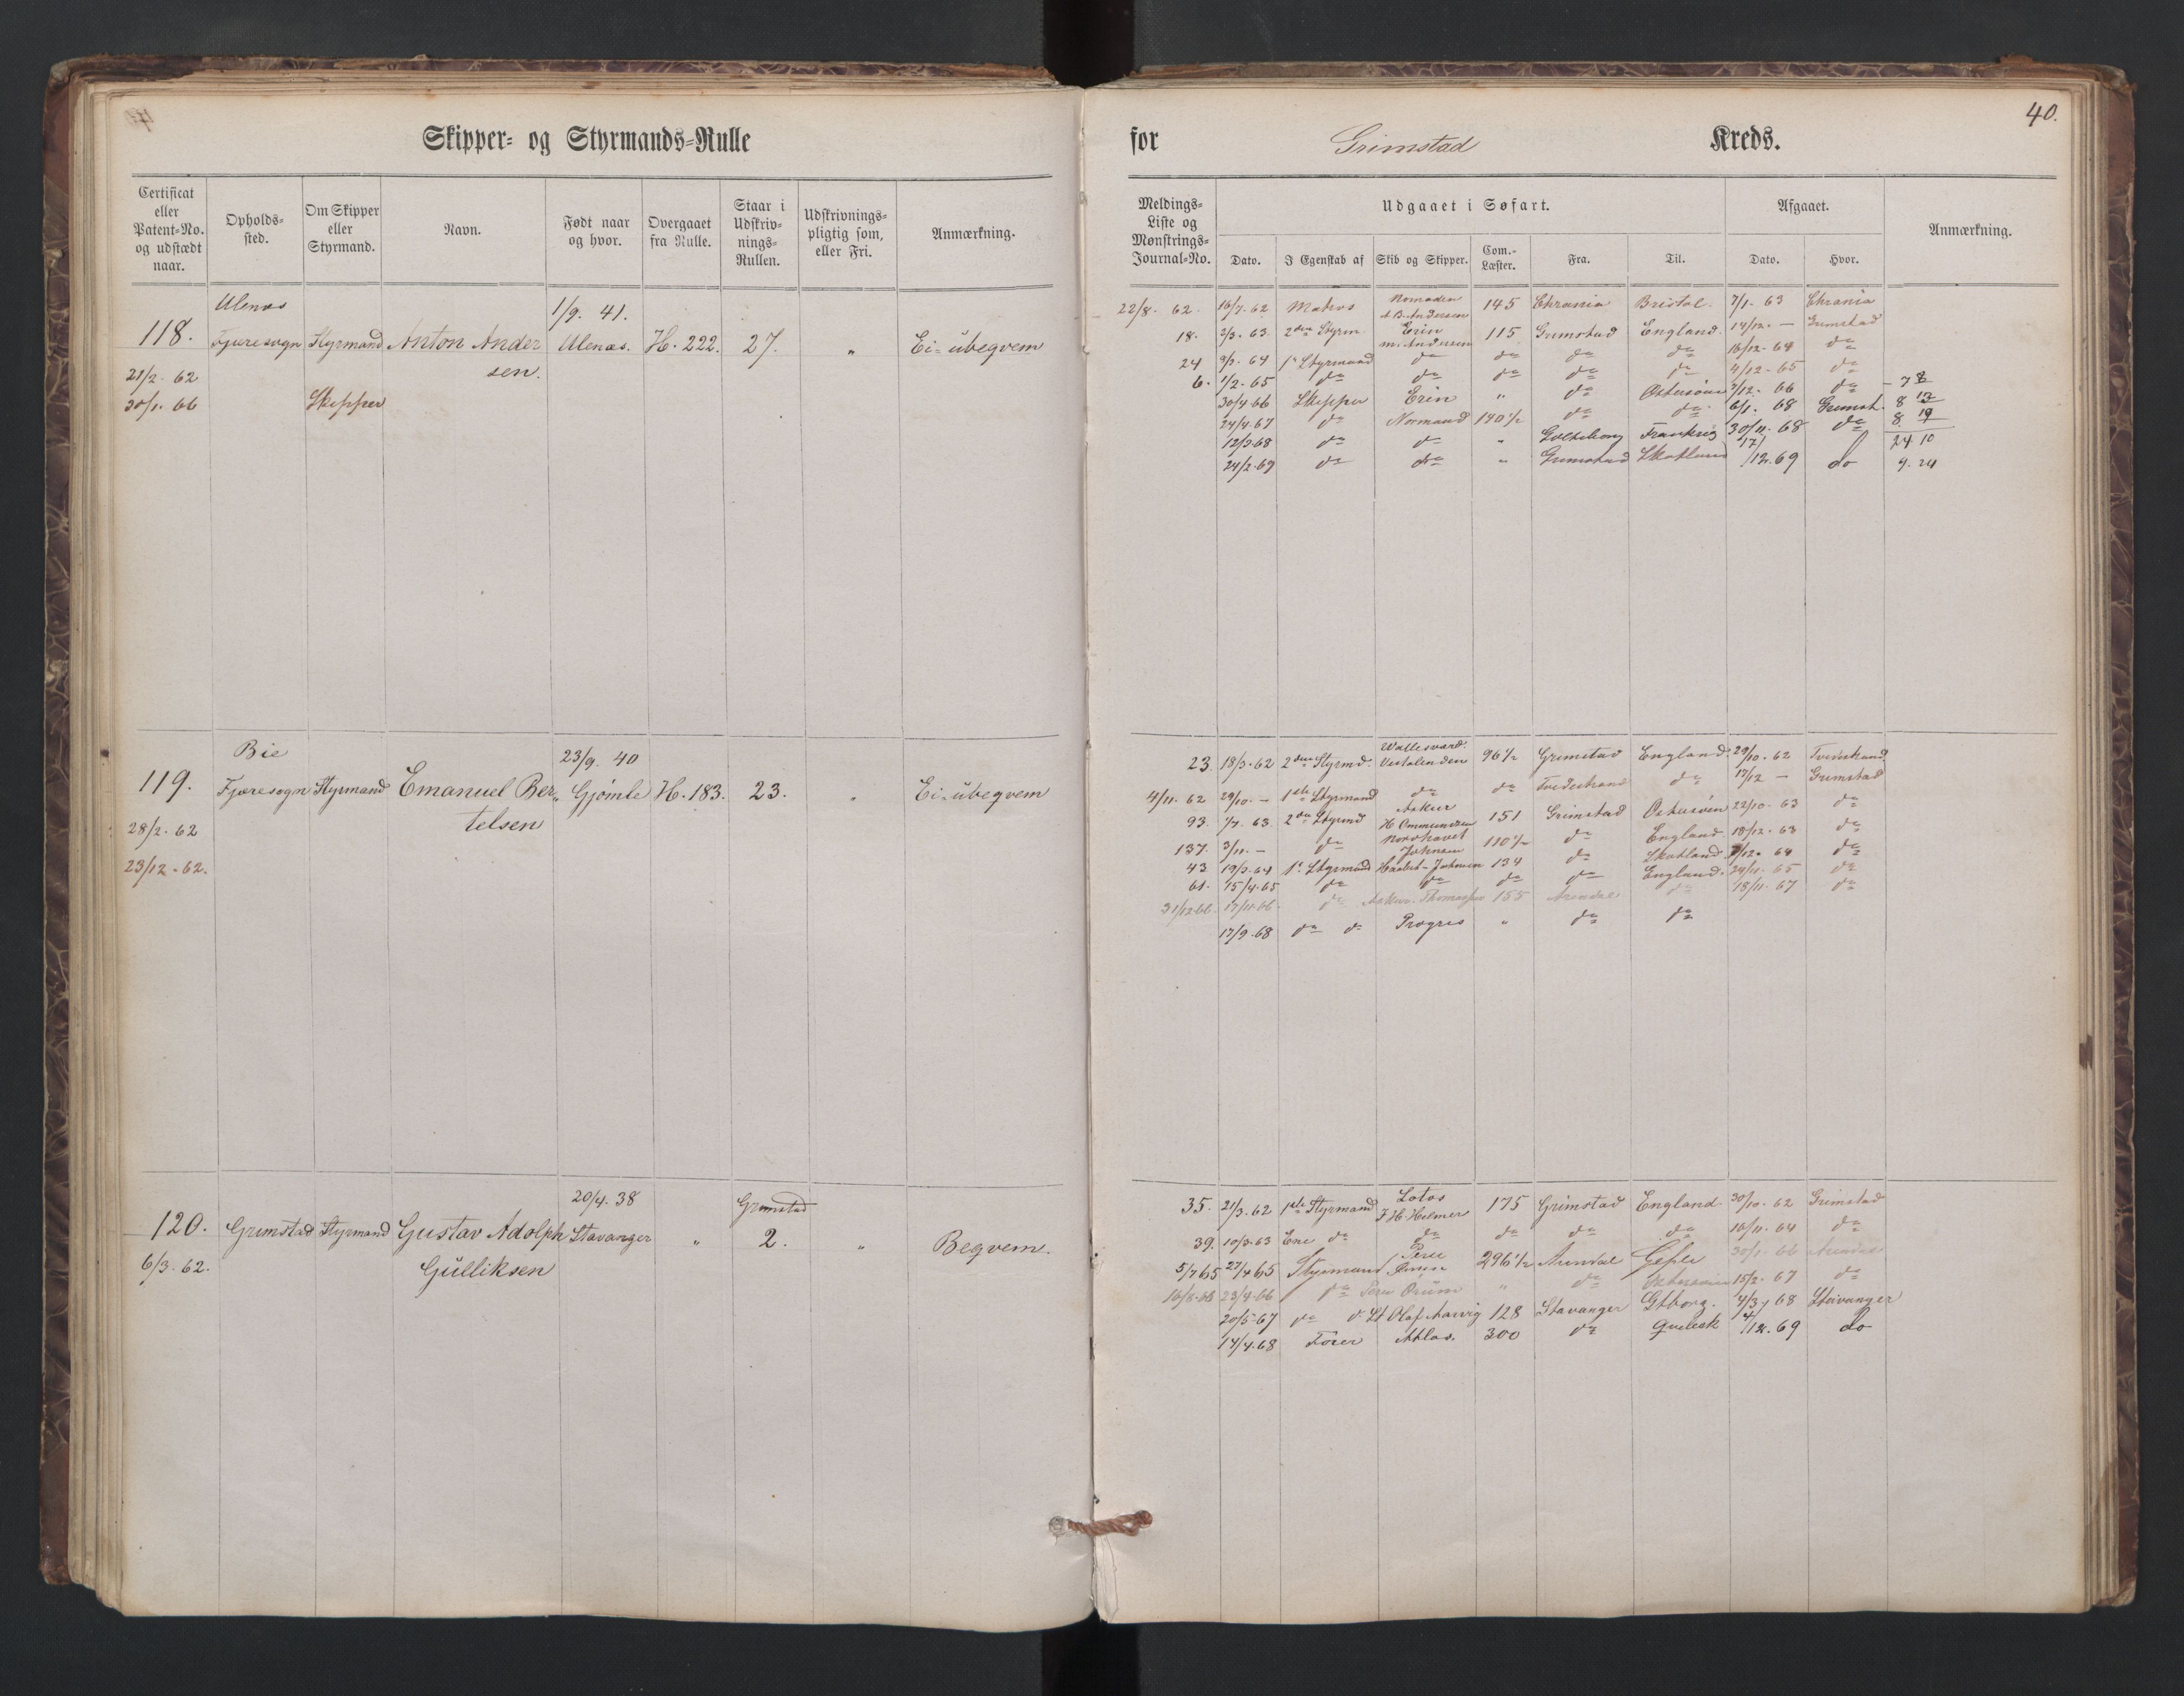 Skipper- og Styrmands-Rulle
for Grimstad Kreds.
40.
Certificat eller Patent-No. og udstædt naar.
Opholds-sted.
Om Skipper eller Styrmand.
Navn.
Født naar og hvor.
Overgaaet fra Rulle.
Staar i Udskriv-nings-Rullen.
Udskrivnings-pligtig som, eller Fri.
Anmærkning.
Meldings-Liste og Mønstrings-Journal-No.
Udgaaet i Søfart.
Dato.
I Egenskab af
Skib og Skipper.
Com.-Læster.
Fra.
Til.
Afgaaet.
Dato.
Hvor.
Anmærkning.
Ulenæs 1/9. 41.
118. Fjæresogn Styrmand Anton Ander Ulenæs. H. 222. 27. " Ei-übeqvem
21/2. 62 sen.
30/1. 66 Skipper
22/8. 62. 16/7. 62 Matros Nomaden A. B. Andersen 145 Chrania Bristol. 7/1. 63 Chrania
18. 2/3. 63. 2den Styrm. Erin M. Andersen 115 Grimstad England. 14/12. — Grimstad
24 9/3. 64 1e Styrmand do do do do 16/12. 64 do
6. 1/2. 65 do do do do do 4/12. 65 do
30/4. 66 Skipper Erin " do Østersøen 7/12. 66 do - 7 8
24/4. 67 do Normand 140 1/2 do do 6/1. 68 Grimst. 8 13
12/3. 68 do do " Gotheborg Frankrig 30/11. 68 do 8 19
24 10
24/2. 69 do do " Grimstad Skotland 17/12. 69 do 9. 24
Bie 23/9. 40
119. Fjæresogn Styrmand Emanuel Ber„ Gjømle H. 183. 23. " Ei-übeqvem
28/2. 62 telsen
23/12. 62.
23. 18/3. 62 2den Styrmd. Vallesværd. Vestalinden 96 1/2 Grimstad England. 29/10. 62 Tvedestrand
4/11. 62 29/10. — 1ste Styrmand do do Tvedestrand do 17/12 — Grimstad
93. 1/7. 63. 2den Styrmd Askur H Ommundsen 151 Grimstad Østersøen 22/10. 63 do
137. 3/11. — do Nordhavet Johnsen 110 1/2 do England. 18/12. 63 do
43 19/3. 64 1e Styrmand Haabet - Johnsen 134 do Skotland 7/12. 64 do
61. 15/4. 65 do do do do England. 24/11. 65 do
31/12. 66. 17/11. 66. do Askur. Thomassen 155 Arendal do 18/11. 67 do
17/9. 68 do do Progres " do do
20/4. 38 Grimstad
120. Grimstad Styrmand Gustav Adolph Stavanger " 2. " Beqvem.
6/3. 62. Gülliksen
35. 21/3. 62 1ste Styrmand Lotos J H. Helmer 175 Grimstad England. 30/10. 62 Grimstad
39. 10/3. 63 Ene do do do do do 16/11. 64 do
5/7 65 27/4 65 Styrmand Peru 296 1/2 Arendal Gefle 30/1. 66 Arendal
16/8. 66 23/4. 66 do Peru Ørüm " do Østersøen 15/2. 67 do
20/5. 67 do do St Olaf Aarvig 128 Stavanger Gtborg. 4/3. 68 Stavanger
14/4. 68 Fører Atlas. 300 do Quebek 4/12. 69 do